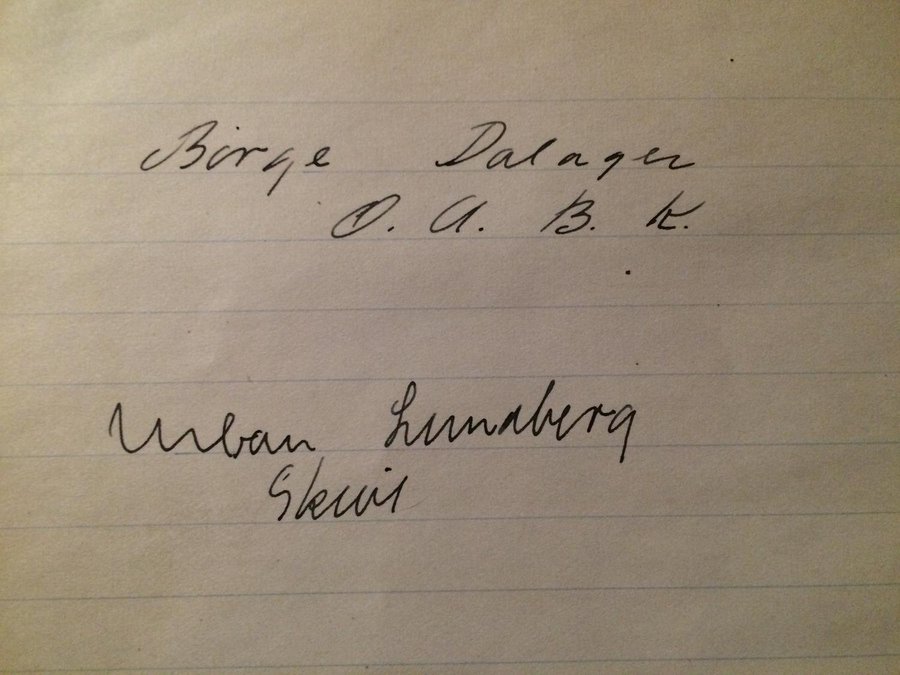 Börge Dalager
O. A. B. K.
Urban Lundberg